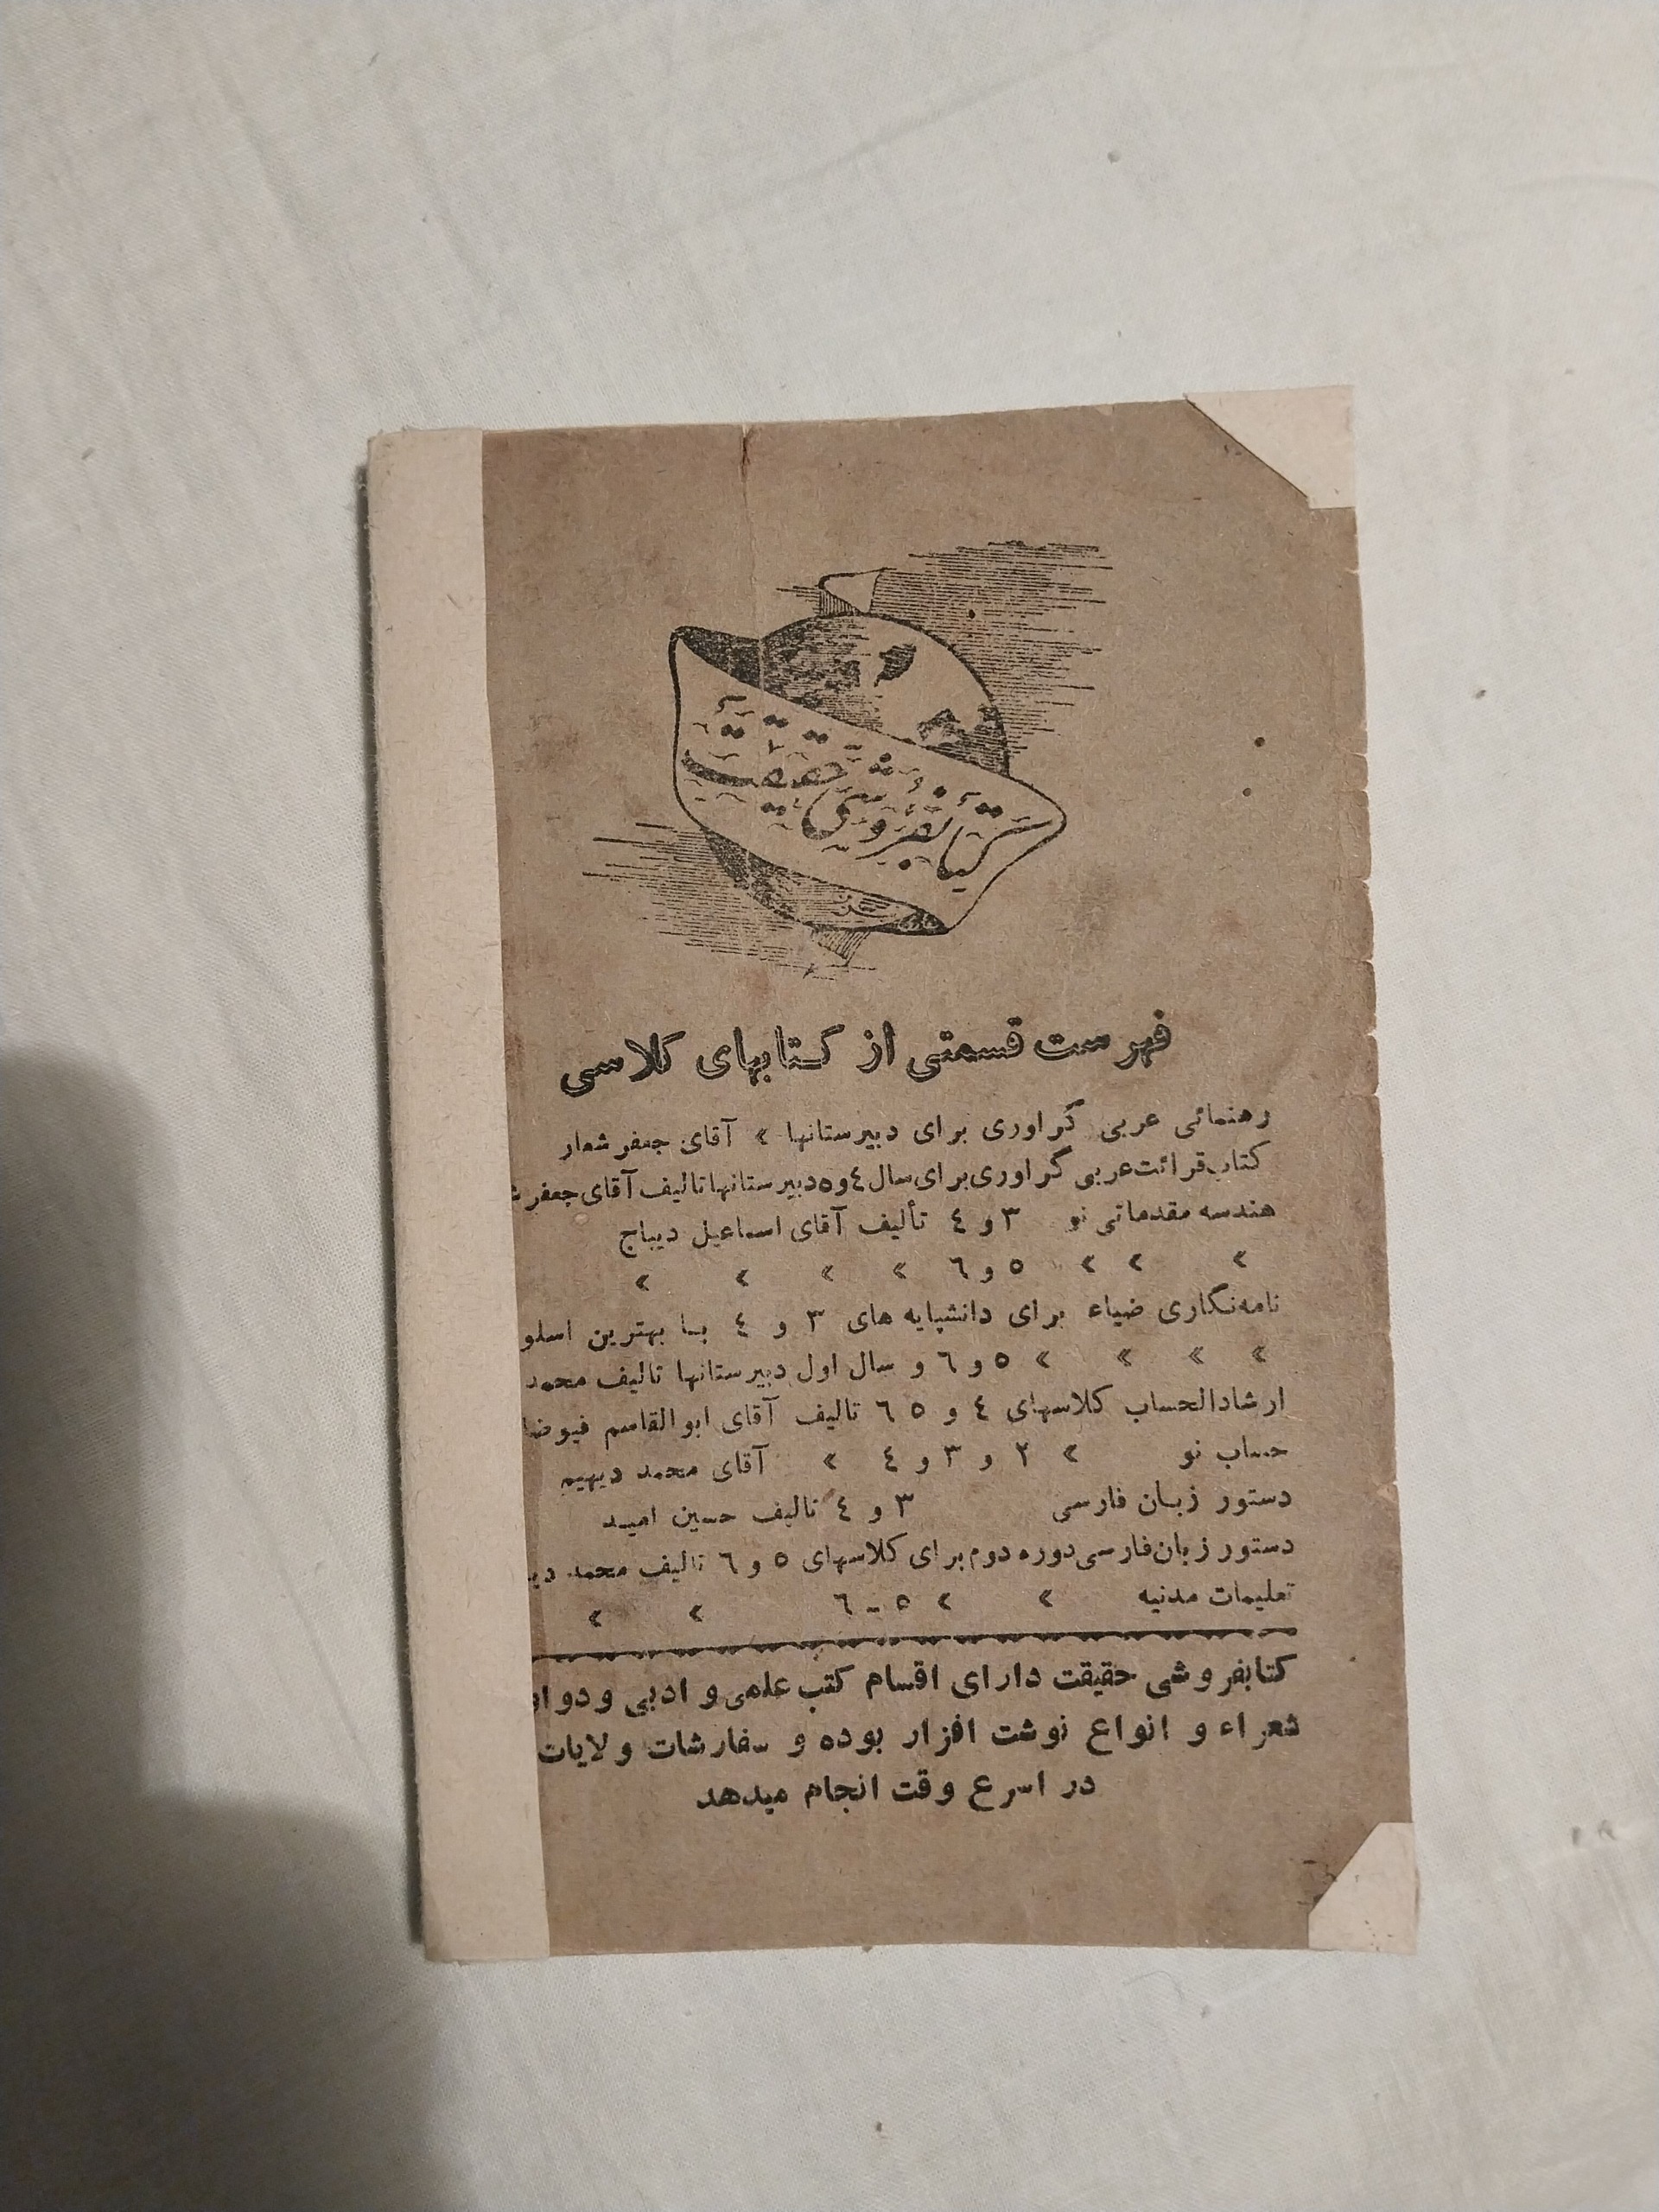 کتابفروشی حقیقت
فهرست قسمتی از کتابهای کلاسی
رهنمائی عربی گراوری برای دبیرستانها » آقای جعفر شعار
کتاب قرائت عربی گراوری برای سال ٤ و ٥ دبیرستانها تالیف آقای جعفر
هندسه مقدماتی نو ۳ و ٤ تألیف آقای اسماعیل دیباج
» » » ٥ و ٦ » » » »
نامه‌نگاری ضیاء برای دانشپایه های ۳ و ٤ با بهترین اسلو
» » » » ٥ و ٦ و سال اول دبیرستانها تالیف محمد
ارشادالحساب کلاسهای ٤ و ٥ ٦ تالیف آقای ابوالقاسم فیوضا
حساب نو » ۲ و ۳ و ٤ » آقای محمد دیهیم
دستور زبان فارسی ۳ و ٤ تالیف حسین امید
دستور زبان فارسی دوره دوم برای کلاسهای ٥ و ٦ تالیف محمد دی
تعلیمات مدنیه » » ٥ - ٦ » »
کتابفروشی حقیقت دارای اقسام کتب علمی و ادبی و دوا
شعراء و انواع نوشت افزار بوده و سفارشات ولایات
در اسرع وقت انجام میدهد